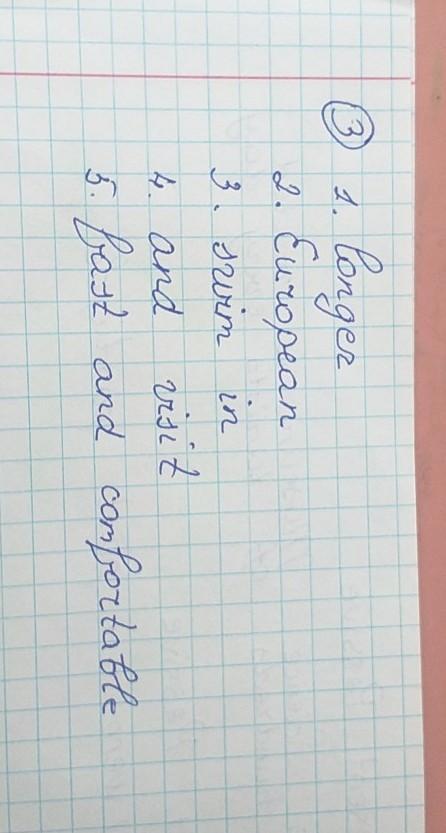 ③ 1. longer
2. European
3. swim in
4. and visit
5. fast and comfortable